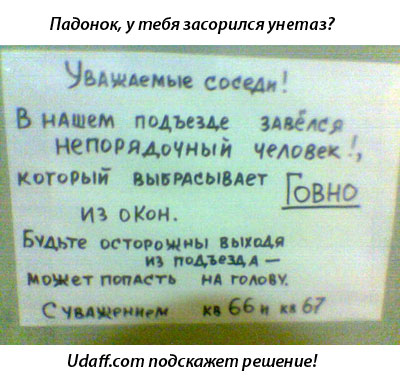 Падонок, у тебя засорился унетаз?
Уважаемые соседи!
В нашем подъезде завёлся
непорядочный человек!,
который выбрасывает Говно
из окон.
Будьте осторожны выходя
из подъезда —
может попасть на голову.
С уважением кв 66 и кв 67
Udaff.com подскажет решение!